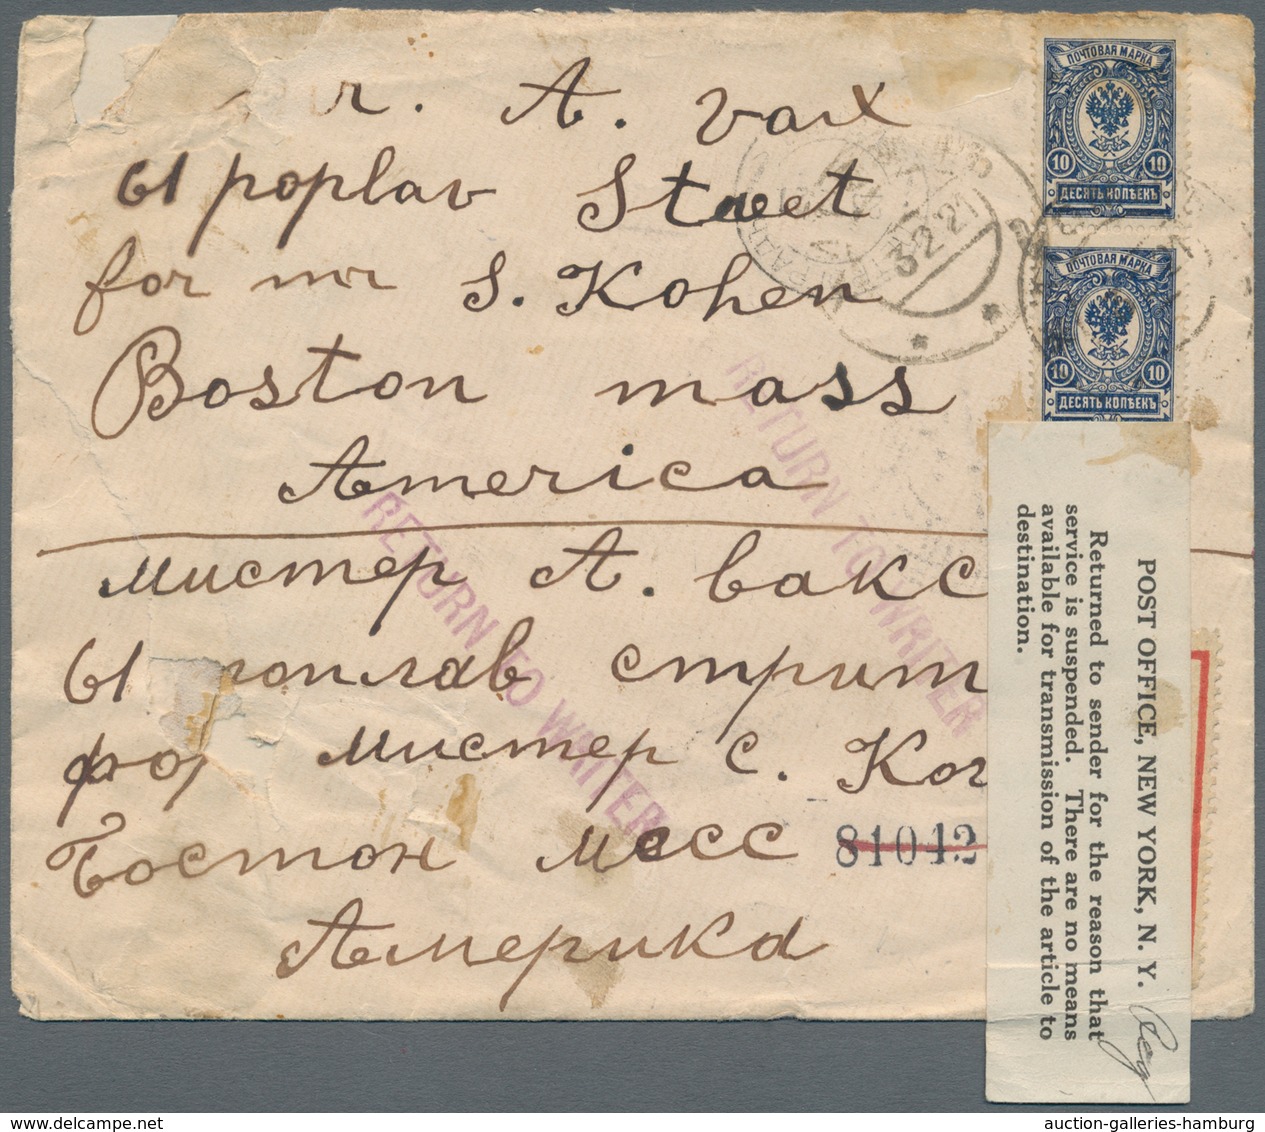 r. A. vax
61 poplav Street
for mr S. Kohen
Boston mass
America
мистер А. вакс
61 поплав стрит
фор мистер с. Ког
Бостон месс
Америка
81042
RETURN TO WRITER
RETURN TO WRITER
3 2 21
ПОЧТОВАЯ МАРКА
10 10
ДЕСЯТЬ КОПѢЕКЪ
ПОЧТОВАЯ МАРКА
10 10
ДЕСЯТЬ КОПѢЕКЪ
POST OFFICE, NEW YORK, N. Y.
Returned to sender for the reason that
service is suspended. There are no means
available for transmission of the article to
destination.
Reg
auction-galleries-hamburg